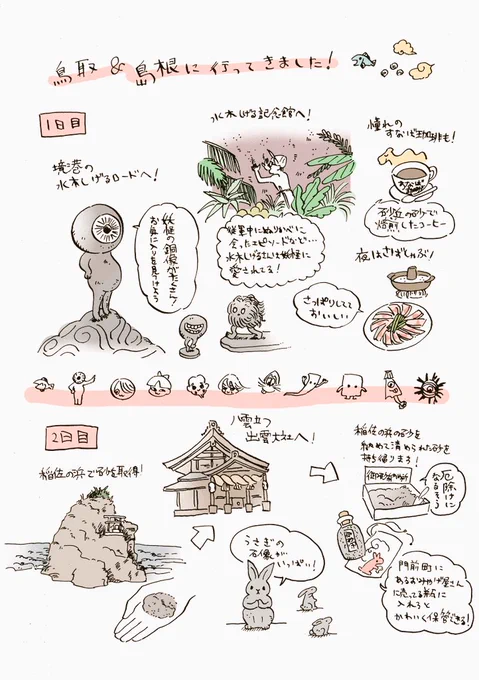 鳥取&島根に行ってきました!
1日目
境港の
水木しげるロードへ!
妖怪の銅像がたくさん!
お気に入りを見つけよう
水木しげる記念館へ!
従軍中にぬりかべに
会ったエピソードなど…
水木しげるさんは妖怪に
愛されてる!
憧れの
すなば珈琲も!
すなば
砂丘の砂で
焙煎したコーヒー
夜はさばしゃぶ!
さっぱりしてて
おいしい
2日目
稲佐の浜で砂を取得!
八雲立つ
出雲大社へ!
うさぎの
石像が
いっぱい!
稲佐の浜の砂を
納めて清められた砂を
持ち帰ります!
厄除けに
なるそう
門前町に
あるおみやげ屋さん
に売ってる瓶に
入れると
かわいく保管できる!